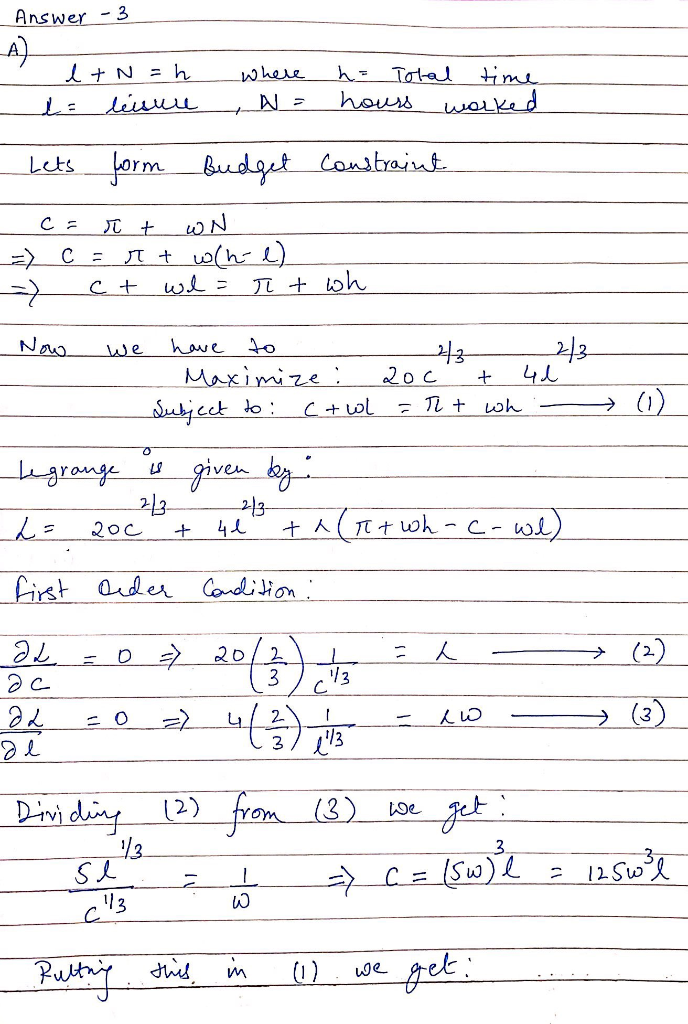 Answer - 3
A)
l + N = h where h = Total time
l = leisure , N = hours worked
Lets form Budget Constraint
C = π + wN
=> C = π + w(h-l)
=> C + wl = π + wh
Now we have to
Maximize : 20c^2/3 + 4l^2/3
Subject to : C + wl = π + wh ⟶ (1)
Legrange is given by :
L = 20c^2/3 + 4l^2/3 + λ(π + wh - c - wl)
first Order Condition :
∂L/∂c = 0 => 20(2/3) 1/c^1/3 = λ ⟶ (2)
∂L/∂l = 0 => 4(2/3) 1/l^1/3 = λw ⟶ (3)
Dividing (2) from (3) we get :
5l^1/3/c^1/3 = 1/w => C = (5w)^3 l = 125w^3 l
Putting this in (1) we get : ....